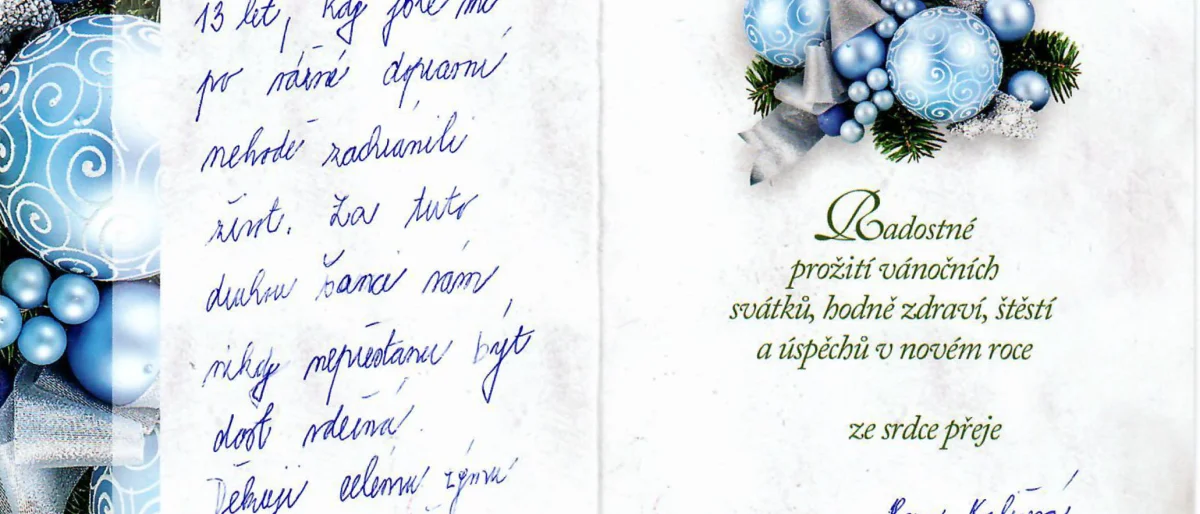 13 let, kdy jste mi
po vážné dopravní
nehodě zachránili
život. Za tuto
druhou šanci vám
nikdy nepřestanu být
dost vděčná.
Děkuji celému týmu
Radostné
prožití vánočních
svátků, hodně zdraví, štěstí
a úspěchů v novém roce
ze srdce přeje